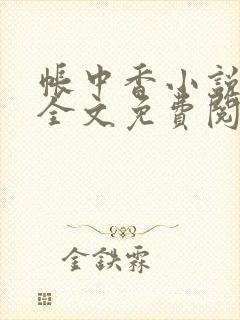 帳中香小說
全文免費閱
金鉄霖